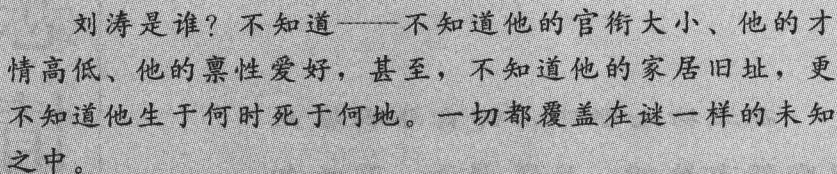 刘涛是谁？不知道——不知道他的官衔大小、他的才
情高低、他的禀性爱好，甚至，不知道他的家居旧址，更
不知道他生于何时死于何地。一切都覆盖在谜一样的未知
之中。